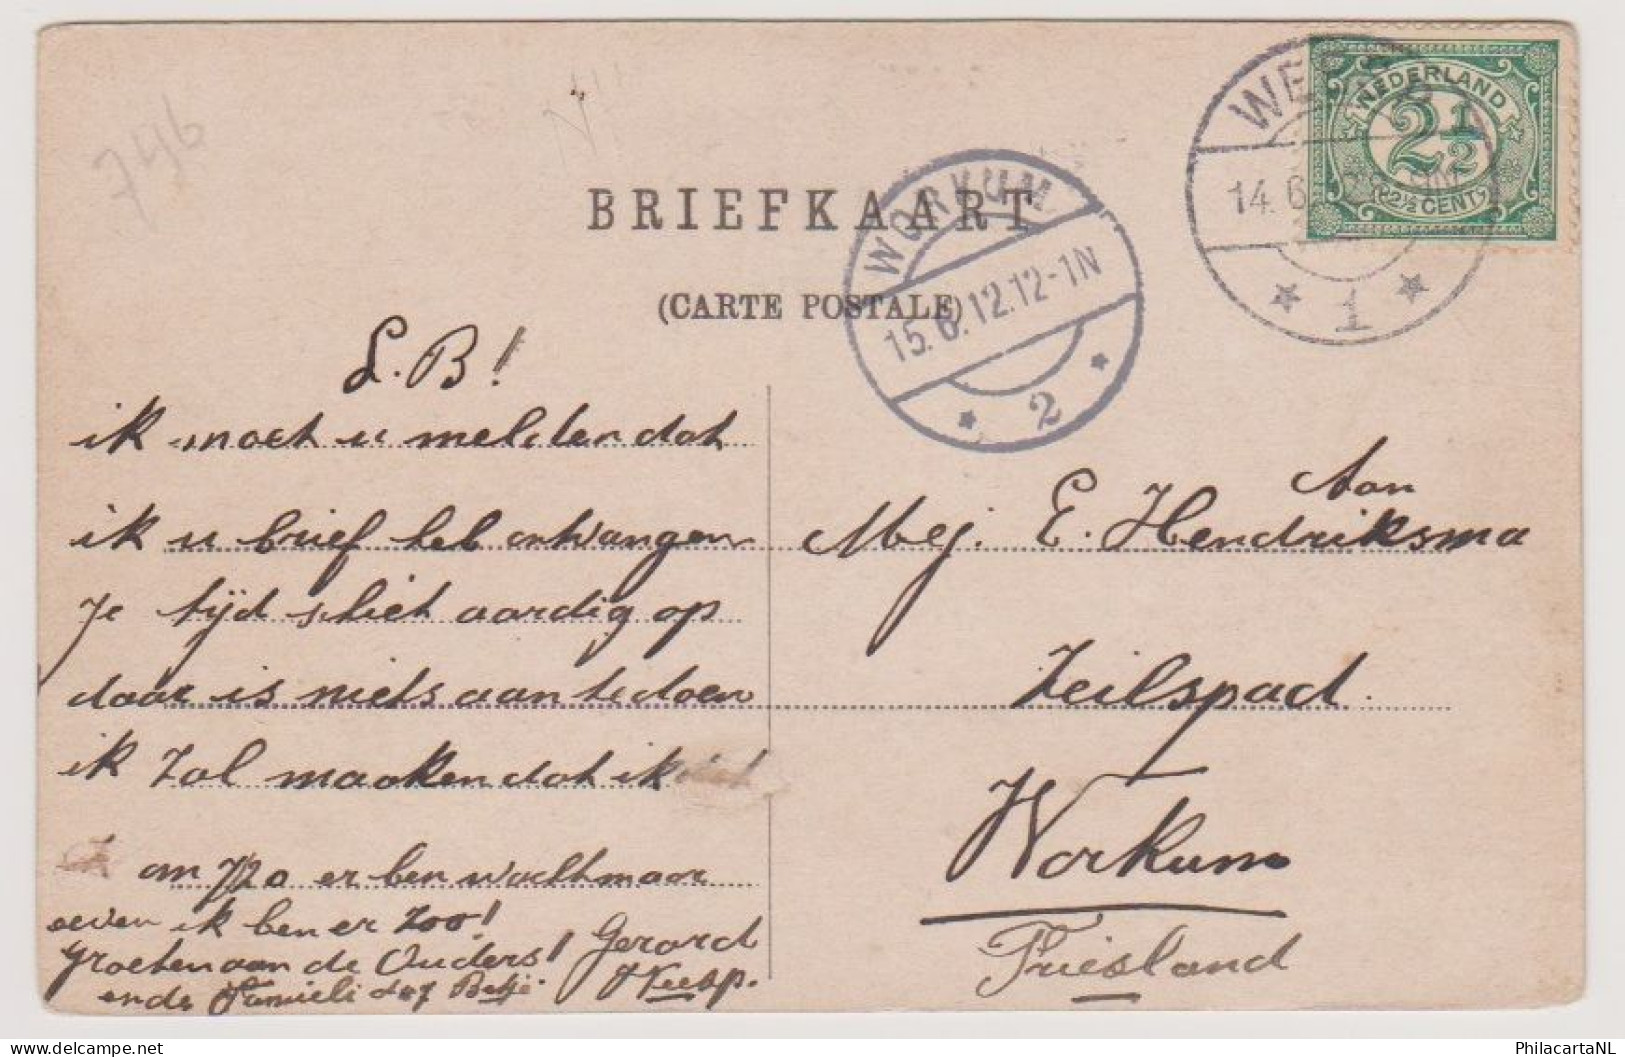 746
BRIEFKAART
(CARTE POSTALE)
WORKUM
15.6.12.12-1N
2
WEE
14.6
1
NEDERLAND
2½
2½ CENT
L.B!
ik moet u melden dat
ik u brief heb ontvangen
Je tijd schiet aardig op
daar is niets aan te doen
ik Zal maaken dat ik
om 7/20 er ben wacht maar
even ik ben er Zoo!
Groeten aan de Ouders! Gerard
en de Famieli Betje. Weesp.
Aan
Mej. E. Hendriksma
Zeilspad.
Workum
Friesland
www.delcampe.net
PhilacartaNL